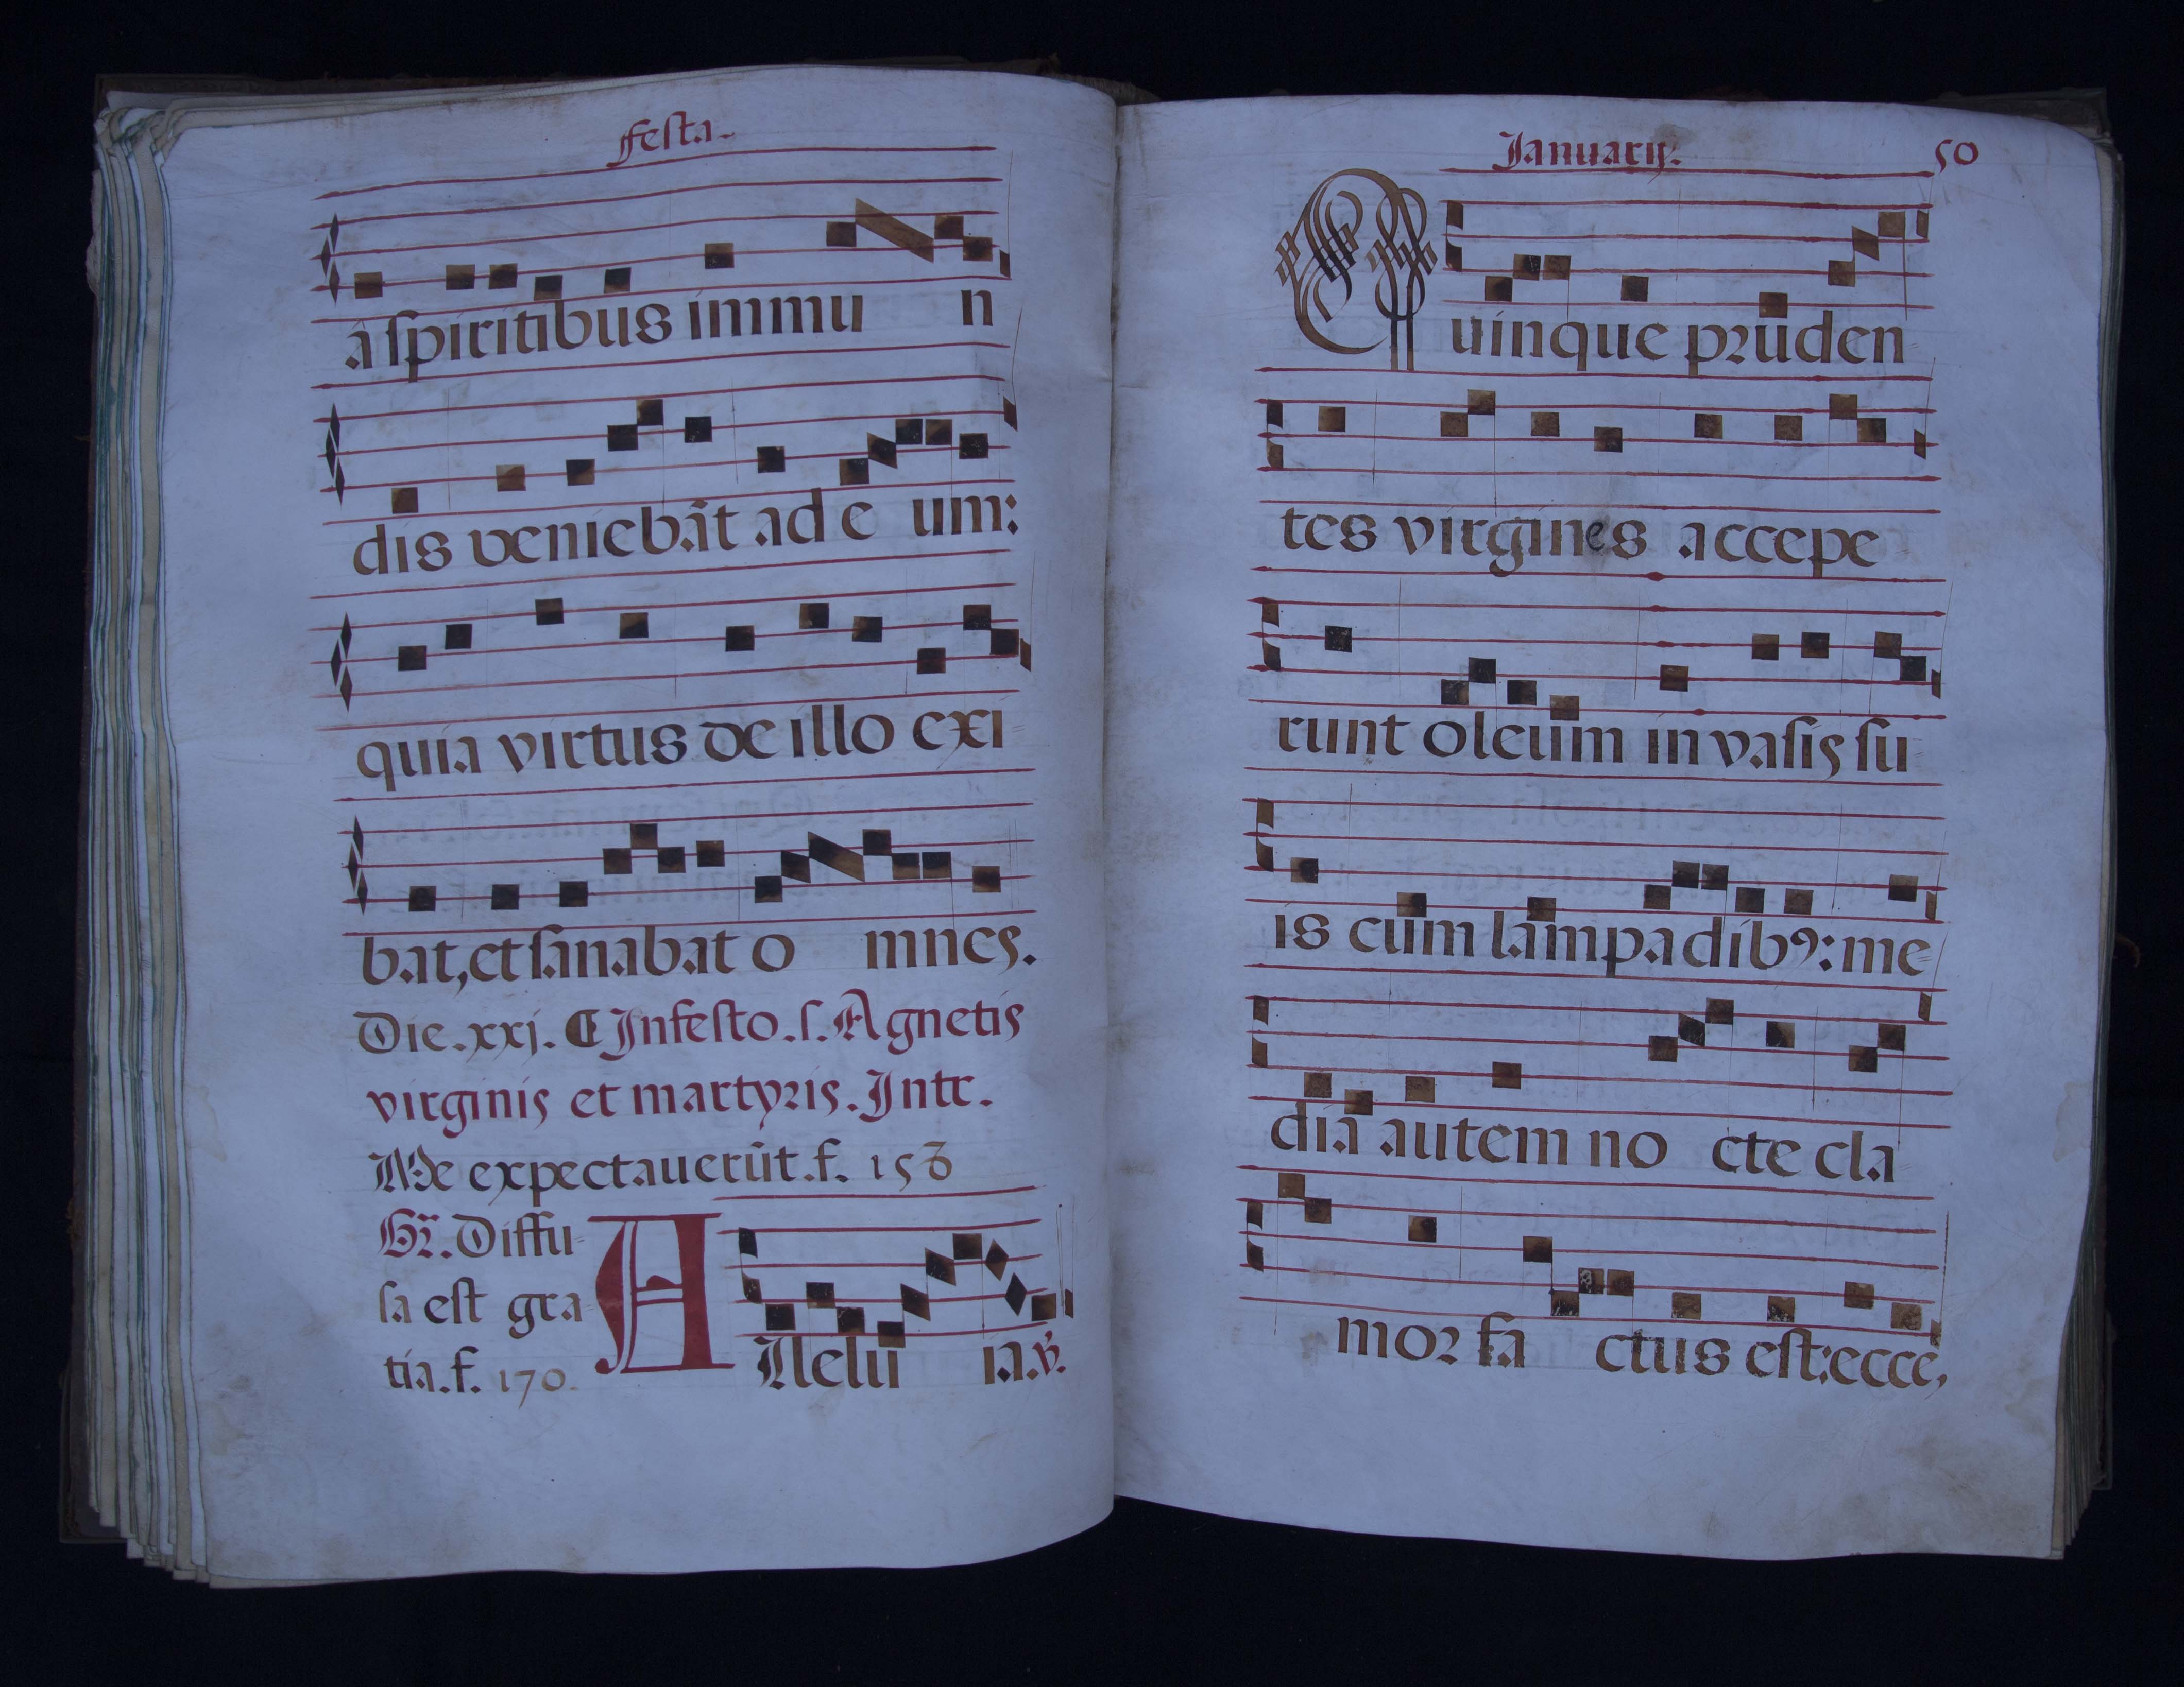 Festa.
â spiritibus immu n
dis veniebãt ad e um:
quia virtus de illo exi
bat, et sanabat o mnes.
Die. xxj. ¶ In festo. S. Agnetis
virginis et martyris. Intr.
Me expectauerũt. f. 153
Gr̃. Diffu-
sa est gra-
tia. f. 170.
Allelu ia. ℣.
Ianuarij. 50
Quinque pruden
tes virgines accepe
runt oleum in vasis su
is cum lampadibꝰ: me-
dia autem no cte cla
mor fa ctus est: ecce,